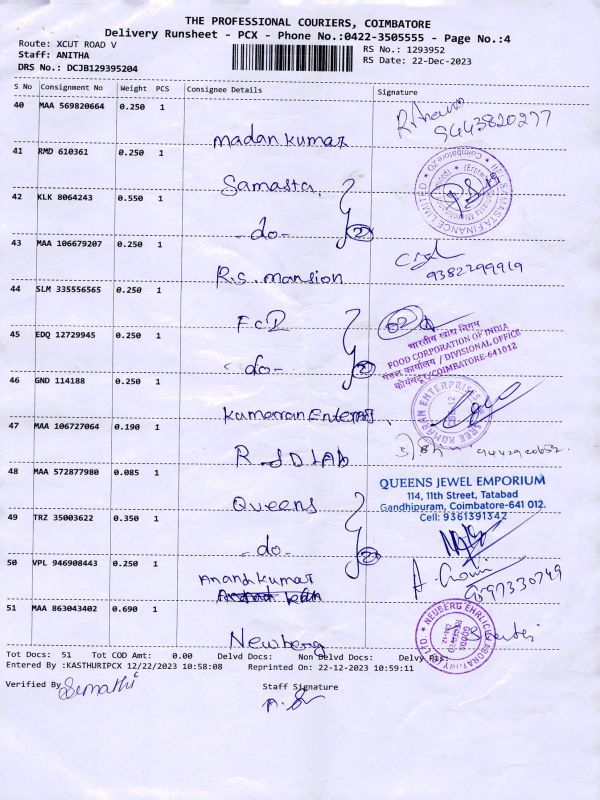 THE PROFESSIONAL COURIERS, COIMBATORE
Delivery Runsheet - PCX - Phone No.:0422-3505555 - Page No.:4
Route: XCUT ROAD V
RS No.: 1293952
Staff: ANITHA
RS Date: 22-Dec-2023
DRS No.: DCJB129395204
S No Consignment No Weight PCS Consignee Details Signature
40 MAA 569820664 0.250 1
madan kumar
9443820277
41 RMD 610361 0.250 1
Samasta
SAMASTA FINANCE LIMITED
42 KLK 8064243 0.550 1
-do- 2
43 MAA 106679207 0.250 1
R.S. mansion
9382299919
44 SLM 335556565 0.250 1
FCI
भारतीय खाद्य निगम
FOOD CORPORATION OF INDIA
मंडल कार्यालय / DIVISIONAL OFFICE
कोयंबटूर/COIMBATORE-641012
45 EDQ 12729945 0.250 1
-do- 2
46 GND 114188 0.250 1
Kumarran
SREE KUMARAN ENTERPRISES
47 MAA 106727064 0.190 1
LAB
48 MAA 572877980 0.085 1
Queens
QUEENS JEWEL EMPORIUM
114, 11th Street, Tatabad
Gandhipuram, Coimbatore-641 012.
Cell: 9361391342
49 TRZ 35003622 0.350 1
-do- 2
50 VPL 946908443 0.250 1
Anand kumar
51 MAA 863043402 0.690 1
Newberg
NEUBERG EHRLICH LABORATORY
Tot Docs: 51 Tot COD Amt: 0.00 Delvd Docs: Non Delvd Docs: Delvy Pts:
Entered By :KASTHURIPCX 12/22/2023 10:58:08 Reprinted On: 22-12-2023 10:59:11
Verified By
Staff Signature